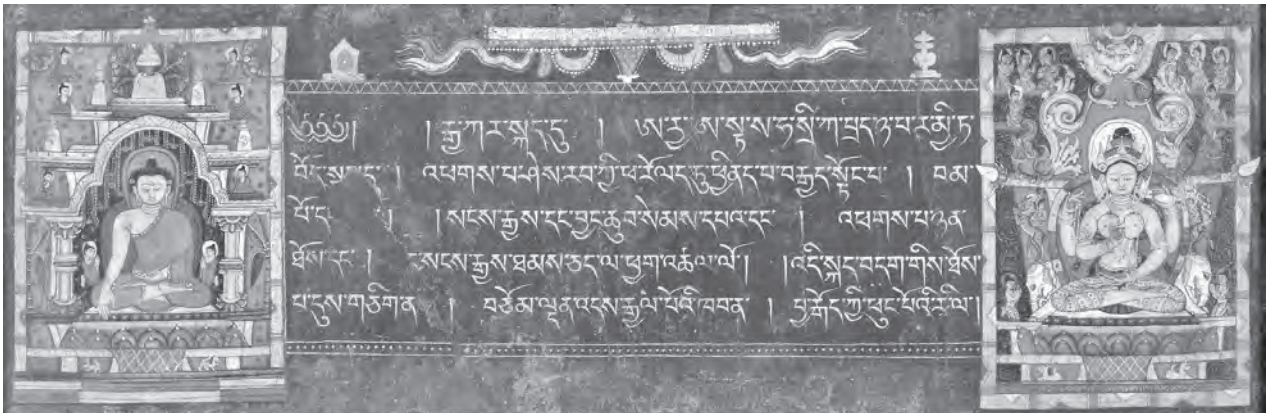 ༄༅༅། །རྒྱ་ཀར་སྐད་དུ། ཨརྱ་ཨ་སྟ་ས་ཧ་སྲི་ཀ་པྲད་ཉ་པ་ར་མྱི་ཏ
བོད་སྐད་དུ། འཕགས་པ་ཤེས་རབ་ཀྱི་ཕ་རོལད་ཏུ་ཕྱིནད་པ་བརྒྱད་སྟོང་པ། བམ་
པོ་ད །སངས་རྒྱས་དང་བྱང་ཆུབ་སེམས་དཔའ་དང་། འཕགས་པ་ཉན་
ཐོས་དང་། སངས་རྒྱས་ཐམས་ཅད་ལ་ཕྱག་འཚལ་ལོ། །འདི་སྐད་བདག་གིས་ཐོས་
པ་དུས་གཅིག་ན། བཅོམ་ལྡན་འདས་རྒྱལ་པོའི་ཁབན། བྱ་རྒོད་ཀྱི་ཕུང་པོའི་རི་ལ།